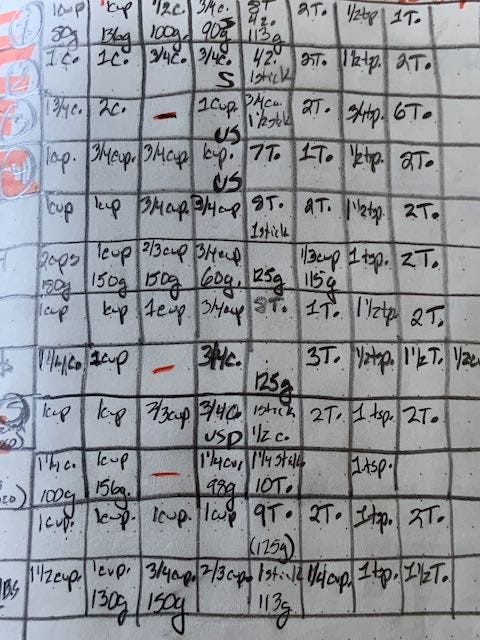 1cup 1cup 1/2c. 3/4c. 8T 2T. 1/2tsp 1T.
80g 136g 100g. 90g S 4z. 113g
1c. 1c. 3/4c. 3/4c. 4z. 2T. 1 1/2tp. 2T.
S 1stick
1 3/4c. 2c. - 1cup. 3/4cu. 2T. 3/4tp. 6T.
US 1 1/2stick
1cup. 3/4cup. 3/4cup 1cup. 7T. 1T. 1/2tp. 2T.
US
1cup 1cup 3/4cup. 3/4cup 8T. 2T. 1 1/2tsp 2T.
1stick
2cups 1cup 2/3cup 3/4cup 1/3cup 1tsp. 2T.
150g 150g 150g 60g. 125g 115g
1cup 1cup. 1cup. 3/4cup 8T. 1T. 1 1/2tp 2T.
1 1/4c. 1cup - 3/4c. 3T. 1/2tsp. 1 1/2T. 1/2c
125g
1cup 1cup 2/3cup 3/4c. 1stick 2T. 1tsp. 2T.
USD 1/2c.
1 1/4c. 1cup - 1 1/4cu. 1 1/4stick 1tsp.
100g 156g. 98g 10T.
1cup. 1cup. 1cup. 1cup 9T. 2T. 1tsp. 2T.
(125g)
BS 1 1/2cup. 1cup. 3/4cup. 2/3cup. 1stick 1/4cup. 1tsp. 1 1/2T.
130g 150g 113g